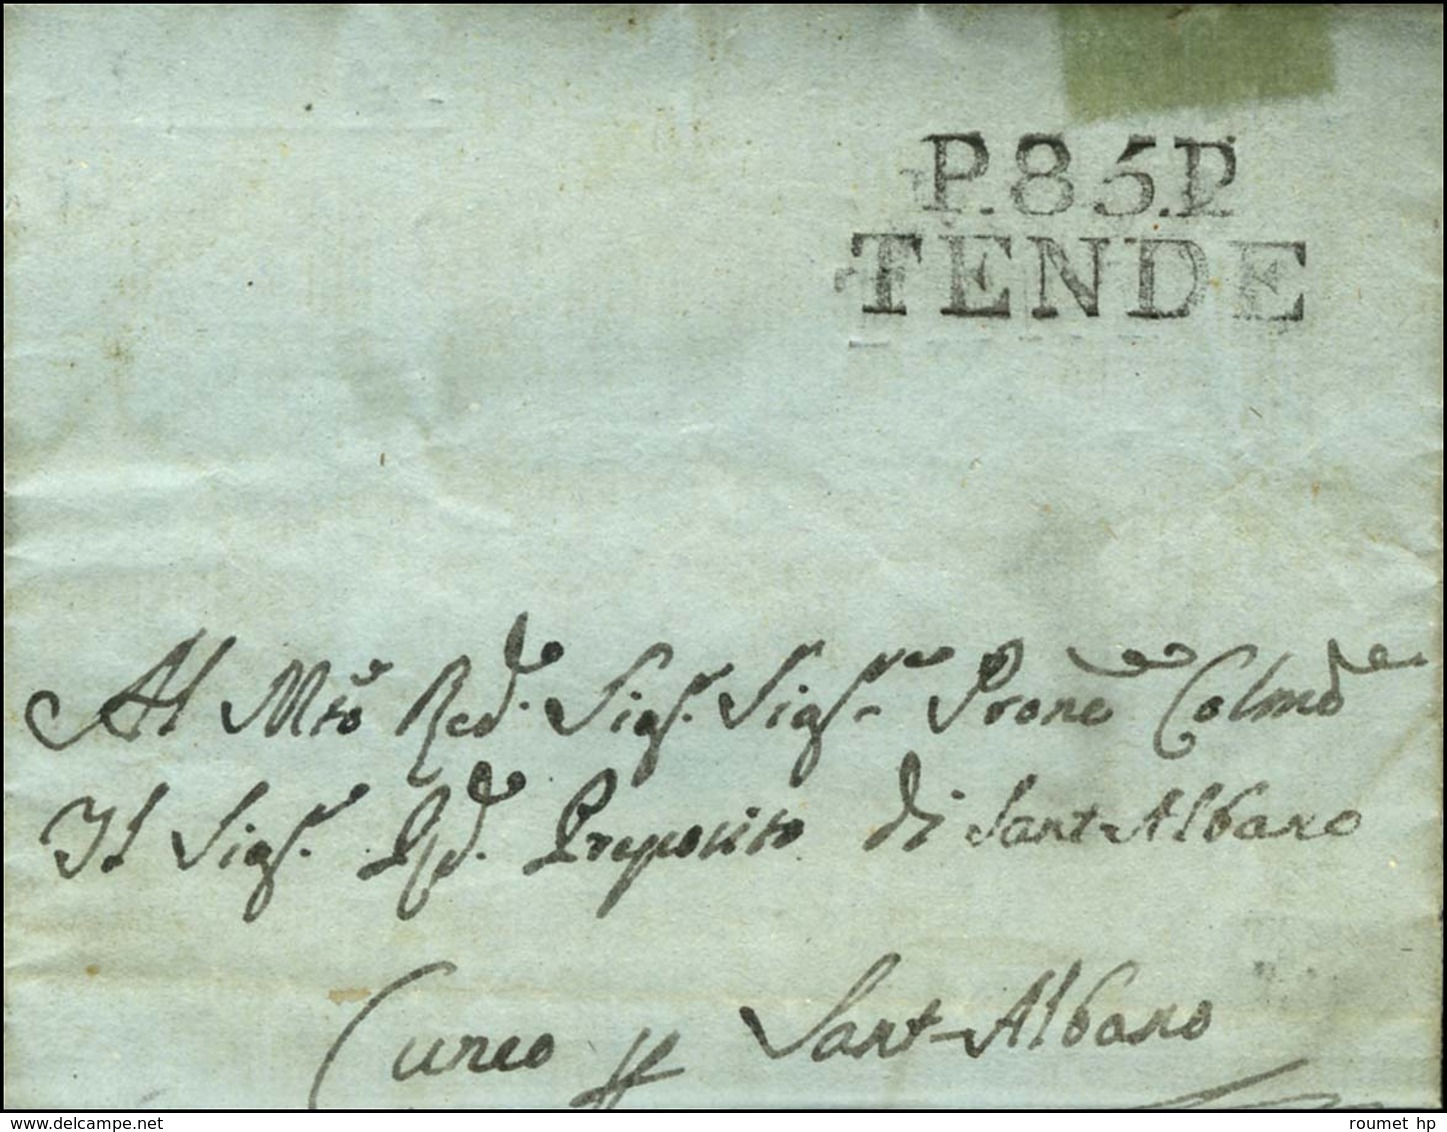 P.85.P
TENDE
Al Mto Red. Sigr. Sigr. Prone Colmo
Il Sigr. Rd. Preposito di Sant Albano
Cuneo p Sant-Albano
delcampe.net
roumet hp